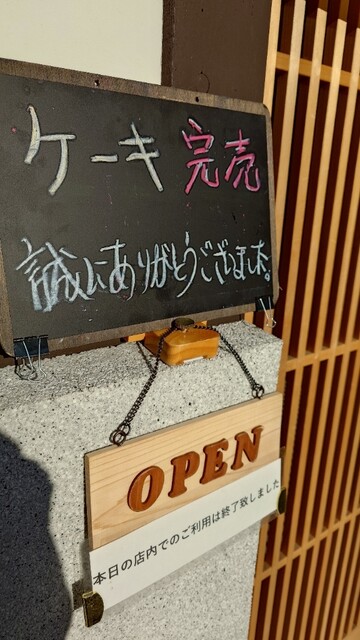 ケーキ 完売
誠にありがとうございました。
OPEN
本日の店内でのご利用は終了致しました